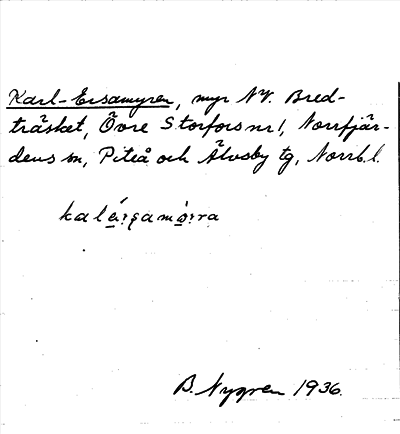 Karl-Ersamyren, myr NV. Bred-
träsket, Övre Storfors nr 1, Norrfjär-
dens sn, Piteå och Älvsby tg, Norrb.l.
B. Nygren 1936.